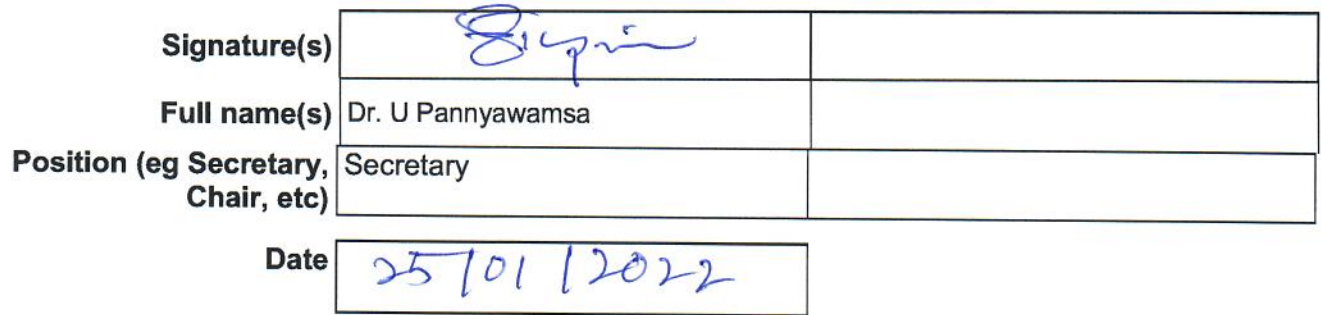 Signature(s)
Full name(s) Dr. U Pannyawamsa
Position (eg Secretary, Secretary
Chair, etc)
Date 25/01/2022